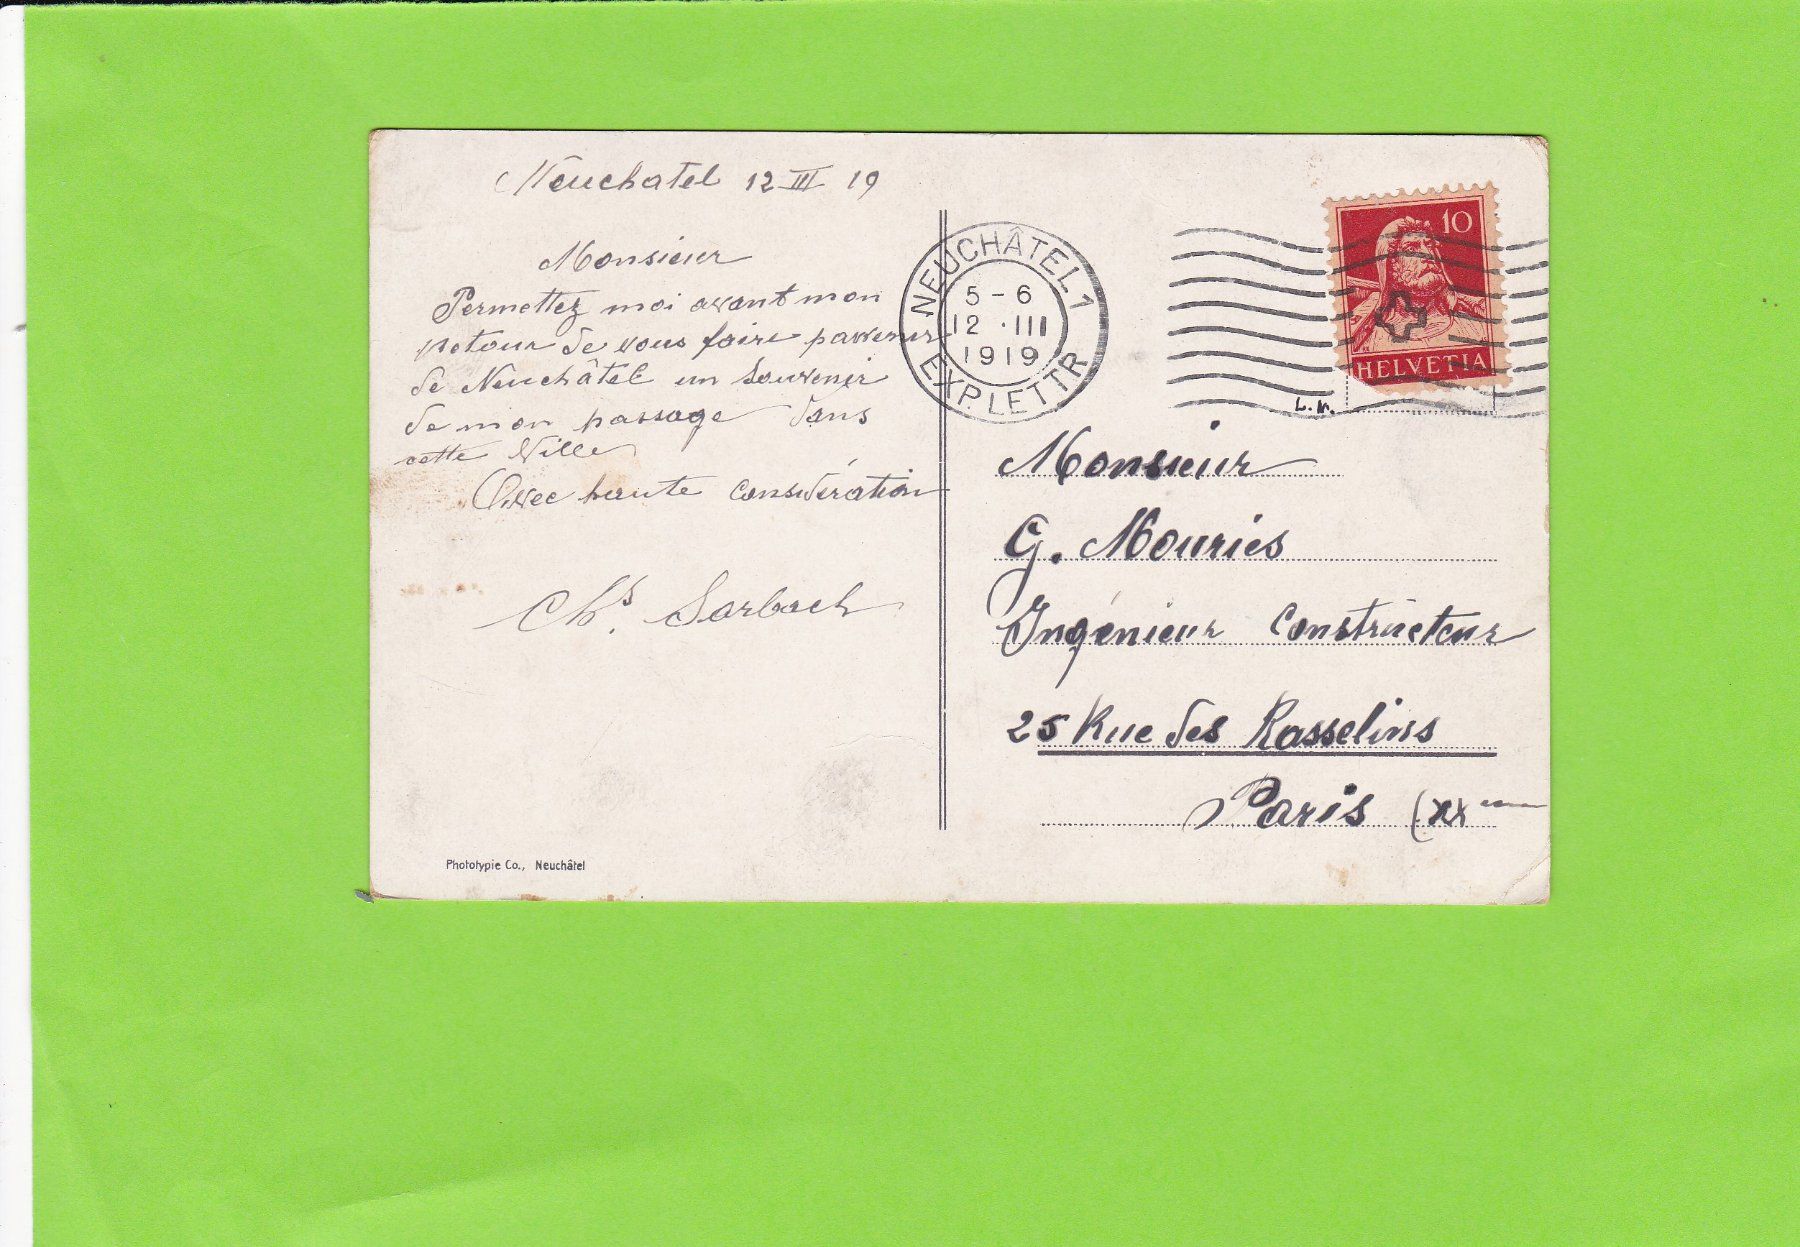 Neuchatel 12 III 19
Monsieur
Permettez moi avant mon
retour de vous faire parvenir
de Neuchâtel un souvenir
de mon passage dans
cette Ville
Avec haute considération
Chs. Sarbach
Phototypie Co., Neuchâtel
NEUCHÂTEL 1
5-6
12.III
1919
EXP. LETTR
10
HELVETIA
L.M.
Monsieur
G. Mouries
Ingénieur Constructeur
25 Rue des Rasselins
Paris (XXeme